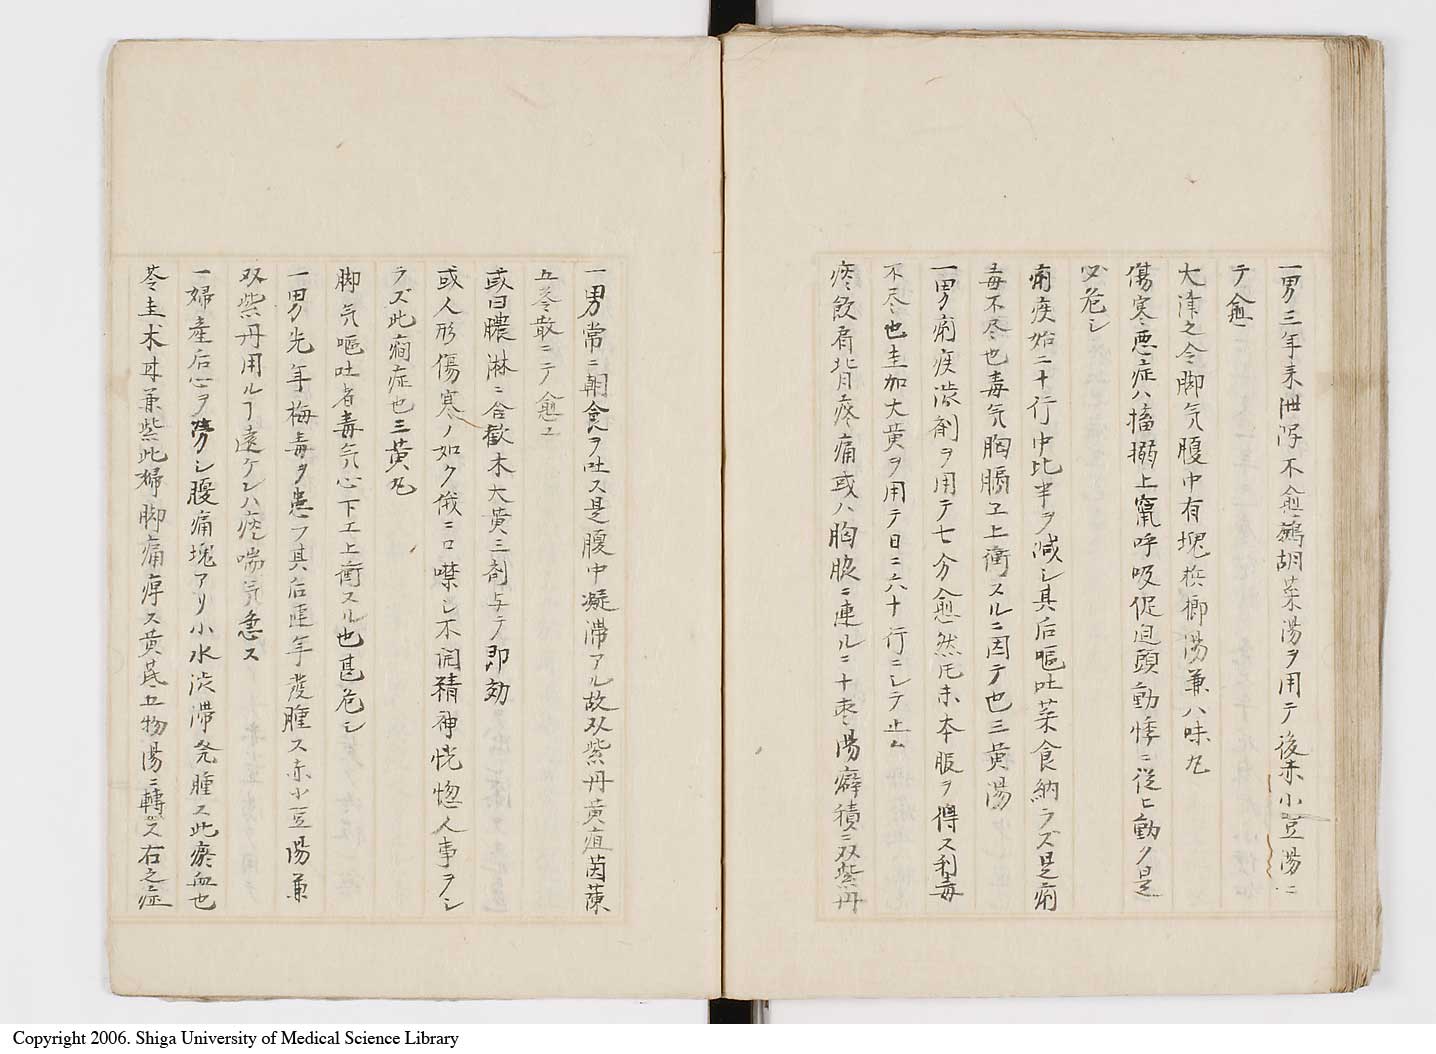 一男三年来泄泻不愈鷓胡菜湯ヲ用テ後赤小豆湯ニ
テ愈
大津之令脚气腹中有塊梹榔湯兼八味丸
傷寒悪症ハ搐搦上竄呼吸促迫頭動悸ニ従ヒ動ク是
必危シ
痢疾始二十行中比半ヲ減シ其后嘔吐菜食納ラズ是痢
毒不尽也毒气胸膈ヱ上衝スルニ因テ也三黄湯
一男痢疾渋剤ヲ用テ七分愈然トモ未本服ヲ得ス利毒
不尽也圭加大黄ヲ用テ日ニ六十行ニシテ止ム
痰飲肩背疼痛或ハ胸腹ニ連ルニ十枣湯癖積ニ双紫丹
一男常ニ朝食ヲ吐ス是腹中凝滞アル故双紫丹黄疸茵蔯
五苓散ニテ愈ユ
或曰膿淋ニ合歓木大黄三剤与テ即効
或人形傷寒ノ如ク俄ニ口噤シ不開精神恍惚人事ヲシ
ラズ此癇症也三黄丸
脚气嘔吐者毒气心下エ上衝スル也甚危シ
一男先年梅毒ヲ患フ其后連年発腫ス赤小豆湯兼
双紫丹用ルヿ遠ケレハ痰喘气急ス
一婦産后心ヲ労シ腹痛塊アリ小水渋滞発腫ス此瘀血也
苓圭术甘兼紫此婦脚痛痹ス黄芪五物湯ニ轉ス右之症
Copyright 2006. Shiga University of Medical Science Library